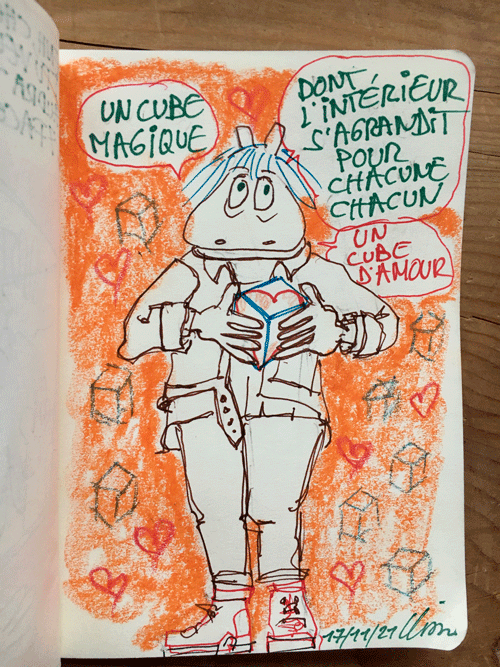 UN CUBE
MAGIQUE
DONT
L'INTÉRIEUR
S'AGRANDIT
POUR
CHACUNE
CHACUN
UN
CUBE
D'AMOUR
17/11/21